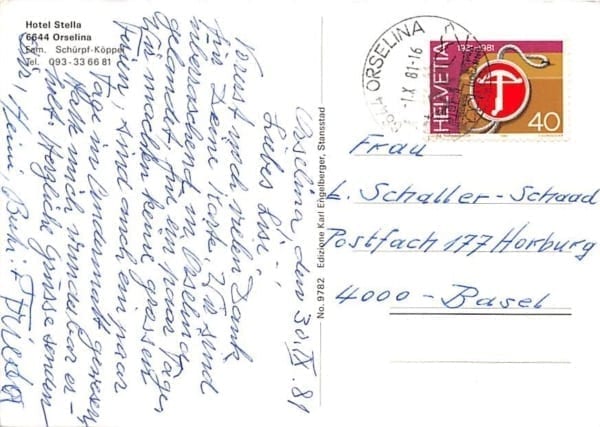 Hotel Stella
6644 Orselina
Fam. Schürpf-Köppel
Tel. 093-33 66 81
Orselina, den 30.IX.81
Liebes Lisi,
Vorerst noch vielen Dank
für Deine Karte. Wir sind
überraschend in Orselina
gelandet für ein paar Tage.
Wir machten keine grossen
Ferien, sind auch ein paar
Tage in Andermatt gewesen,
hatte mich wunderbar er-
holt. Herzliche Grüsse senden
Dir, Heini, Bubi + Frieda
No. 9782 Edizione Karl Engelberger, Stansstad
6644 ORSELINA
-1.X.81-16
HELVETIA
1931-1981
40
Frau
L. Schaller-Schaad
Postfach 177 Horburg
4000-Basel